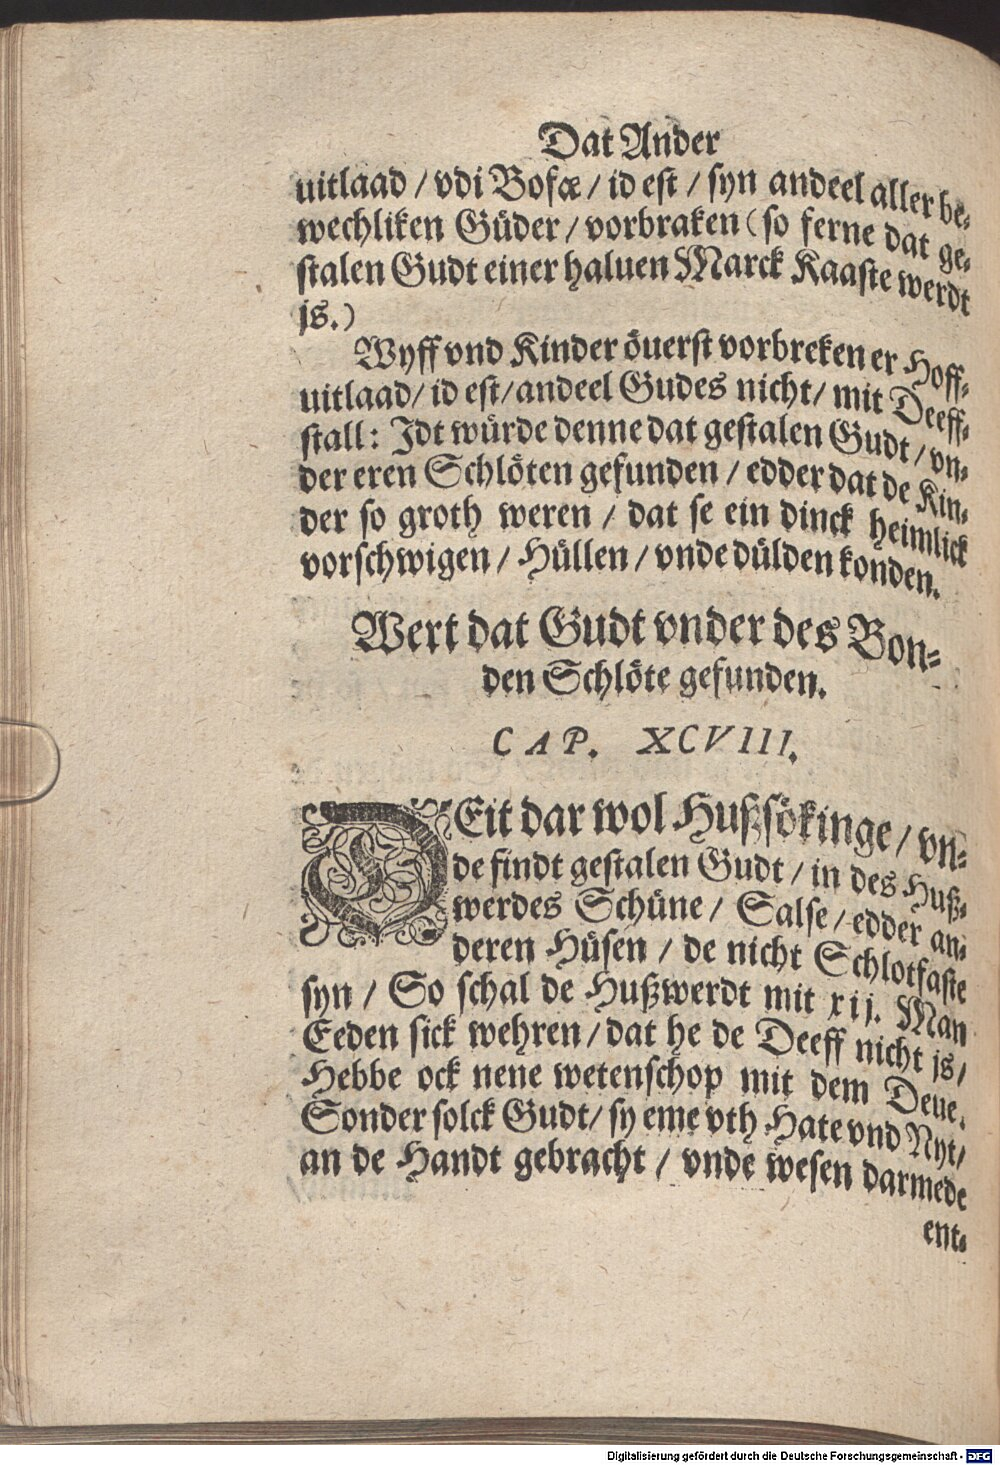 Dat Ander
uitlaad / vdi Bofæ / id est / syn andeel aller be-
wechliken Güder / vorbraken (so ferne dat ge-
stalen Gudt einer haluen Marck Kaaste werdt
js.)
Wyff vnd Kinder öuerst vorbreken er Hoff-
uitlaad / id est / andeel Gudes nicht / mit Deeff-
stall: Idt würde denne dat gestalen Gudt / vn-
der eren Schlöten gefunden / edder dat de Kin-
der so groth weren / dat se ein dinck heimlick
vorschwigen / Hüllen / vnde dülden konden.
Wert dat Gudt vnder des Bon-
den Schlöte gefunden.
CAP. XCVIII.
DEit dar wol Hußsökinge / vn-
de findt gestalen Gudt / in des Huß-
werdes Schüne / Salse / edder an-
deren Hüsen / de nicht Schlotfaste
syn / So schal de Hußwerdt mit xij. Man
Eeden sick wehren / dat he de Deeff nicht js /
Hebbe ock nene wetenschop mit dem Deue.
Sonder solck Gudt / sy eme vth Hate vnd Nyt /
an de Handt gebracht / vnde wesen darmede
ent-
Digitalisierung gefördert durch die Deutsche Forschungsgemeinschaft - DFG